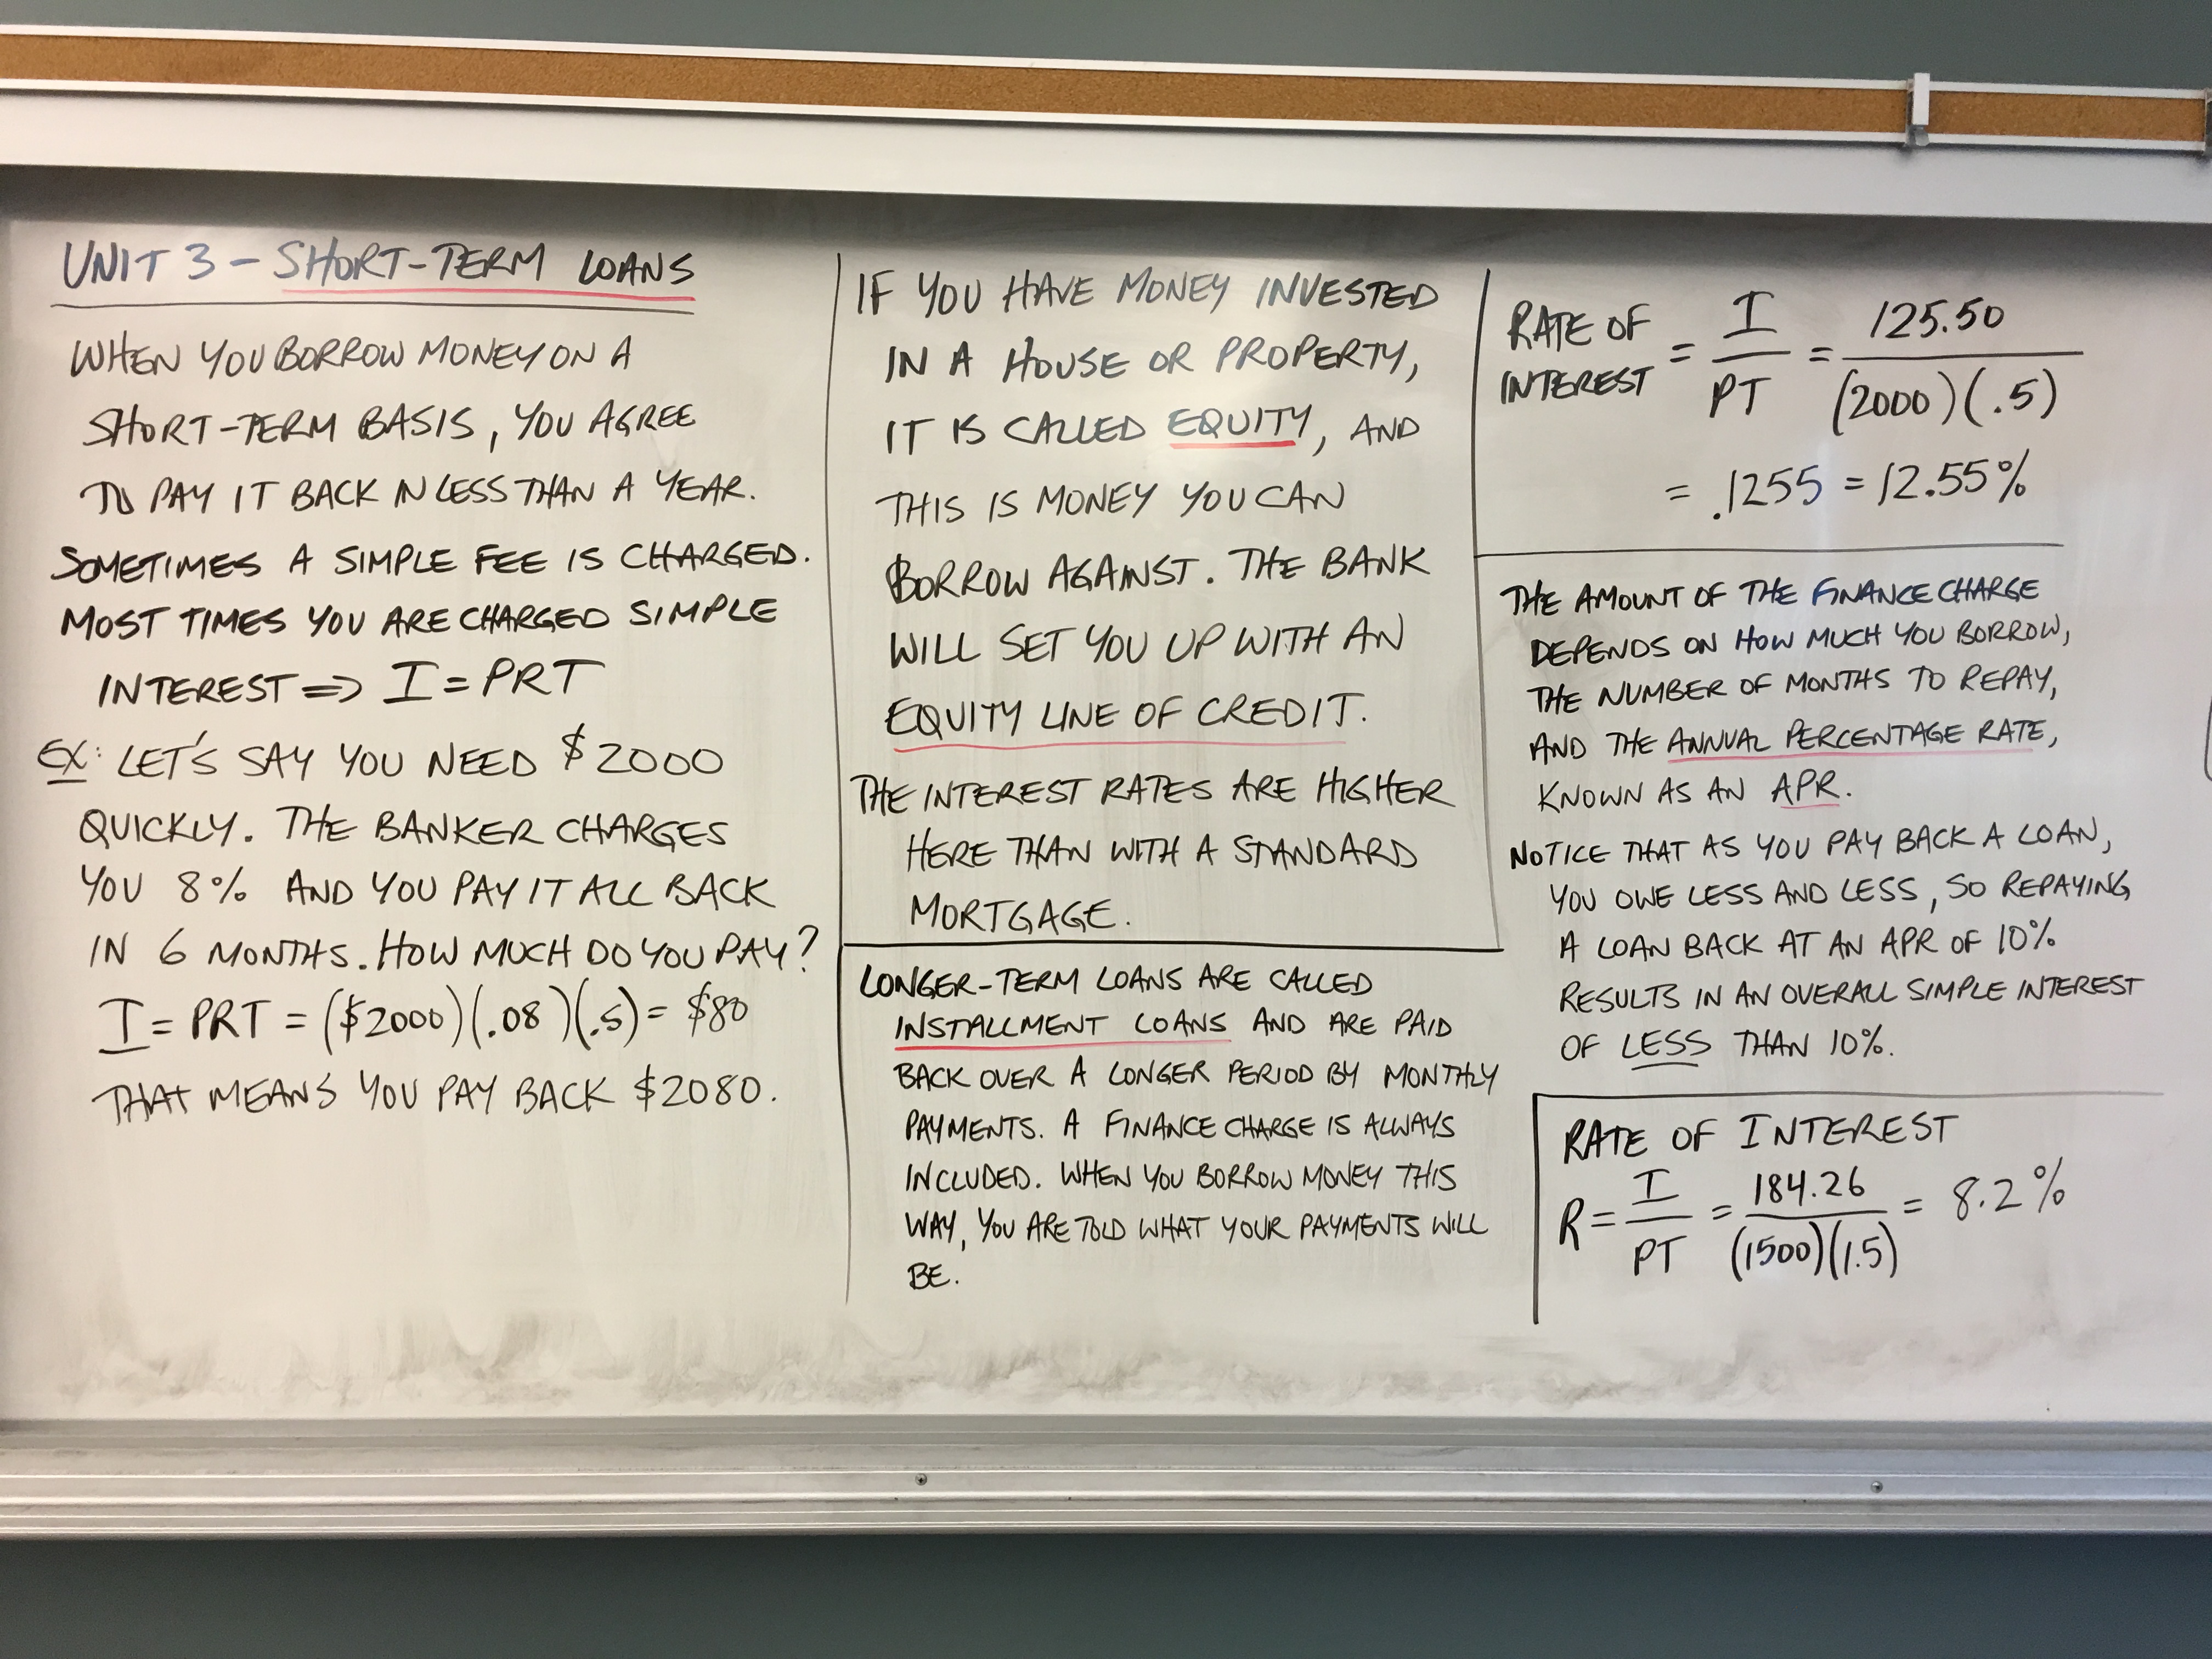 UNIT 3 - SHORT-TERM LOANS
WHEN YOU BORROW MONEY ON A
SHORT-TERM BASIS, YOU AGREE
TO PAY IT BACK IN LESS THAN A YEAR.
SOMETIMES A SIMPLE FEE IS CHARGED.
MOST TIMES YOU ARE CHARGED SIMPLE
INTEREST => I = PRT
EX: LET'S SAY YOU NEED $2000
QUICKLY. THE BANKER CHARGES
YOU 8% AND YOU PAY IT ALL BACK
IN 6 MONTHS. HOW MUCH DO YOU PAY?
I = PRT = ($2000)(.08)(.5) = $80
THAT MEANS YOU PAY BACK $2080.
IF YOU HAVE MONEY INVESTED
IN A HOUSE OR PROPERTY,
IT IS CALLED EQUITY, AND
THIS IS MONEY YOU CAN
BORROW AGAINST. THE BANK
WILL SET YOU UP WITH AN
EQUITY LINE OF CREDIT.
THE INTEREST RATES ARE HIGHER
HERE THAN WITH A STANDARD
MORTGAGE.
LONGER-TERM LOANS ARE CALLED
INSTALLMENT LOANS AND ARE PAID
BACK OVER A LONGER PERIOD BY MONTHLY
PAYMENTS. A FINANCE CHARGE IS ALWAYS
INCLUDED. WHEN YOU BORROW MONEY THIS
WAY, YOU ARE TOLD WHAT YOUR PAYMENTS WILL
BE.
RATE OF INTEREST = I/PT = 125.50/(2000)(.5)
= .1255 = 12.55%
THE AMOUNT OF THE FINANCE CHARGE
DEPENDS ON HOW MUCH YOU BORROW,
THE NUMBER OF MONTHS TO REPAY,
AND THE ANNUAL PERCENTAGE RATE,
KNOWN AS AN APR.
NOTICE THAT AS YOU PAY BACK A LOAN,
YOU OWE LESS AND LESS, SO REPAYING
A LOAN BACK AT AN APR OF 10%
RESULTS IN AN OVERALL SIMPLE INTEREST
OF LESS THAN 10%.
RATE OF INTEREST
R = I/PT = 184.26/(1500)(1.5) = 8.2%